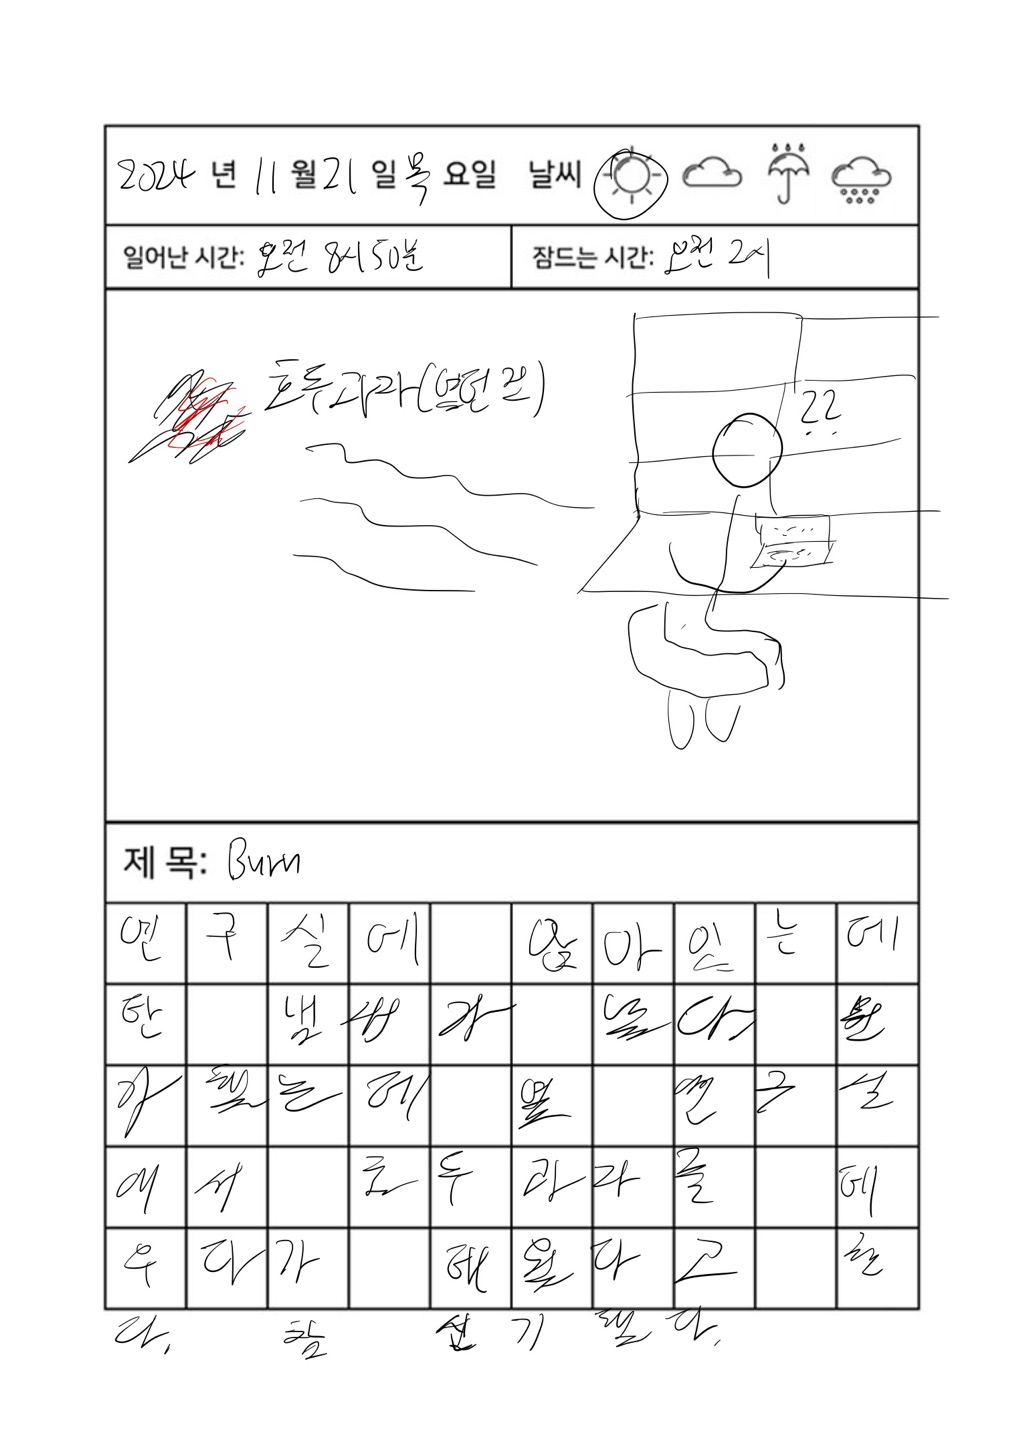 2024 년 11 월 21 일 목 요일 날씨
일어난 시간: 오전 8시 50분 잠드는 시간: 오전 2시
호두과자(였던 것)
??
제 목: Burn
연구실에 앉아있는데
탄 냄새가 났다. 뭔
가 했는데 옆 연구실
에서 호두과자를 데
우다가 태웠다고 한
다. 참 신기했다.